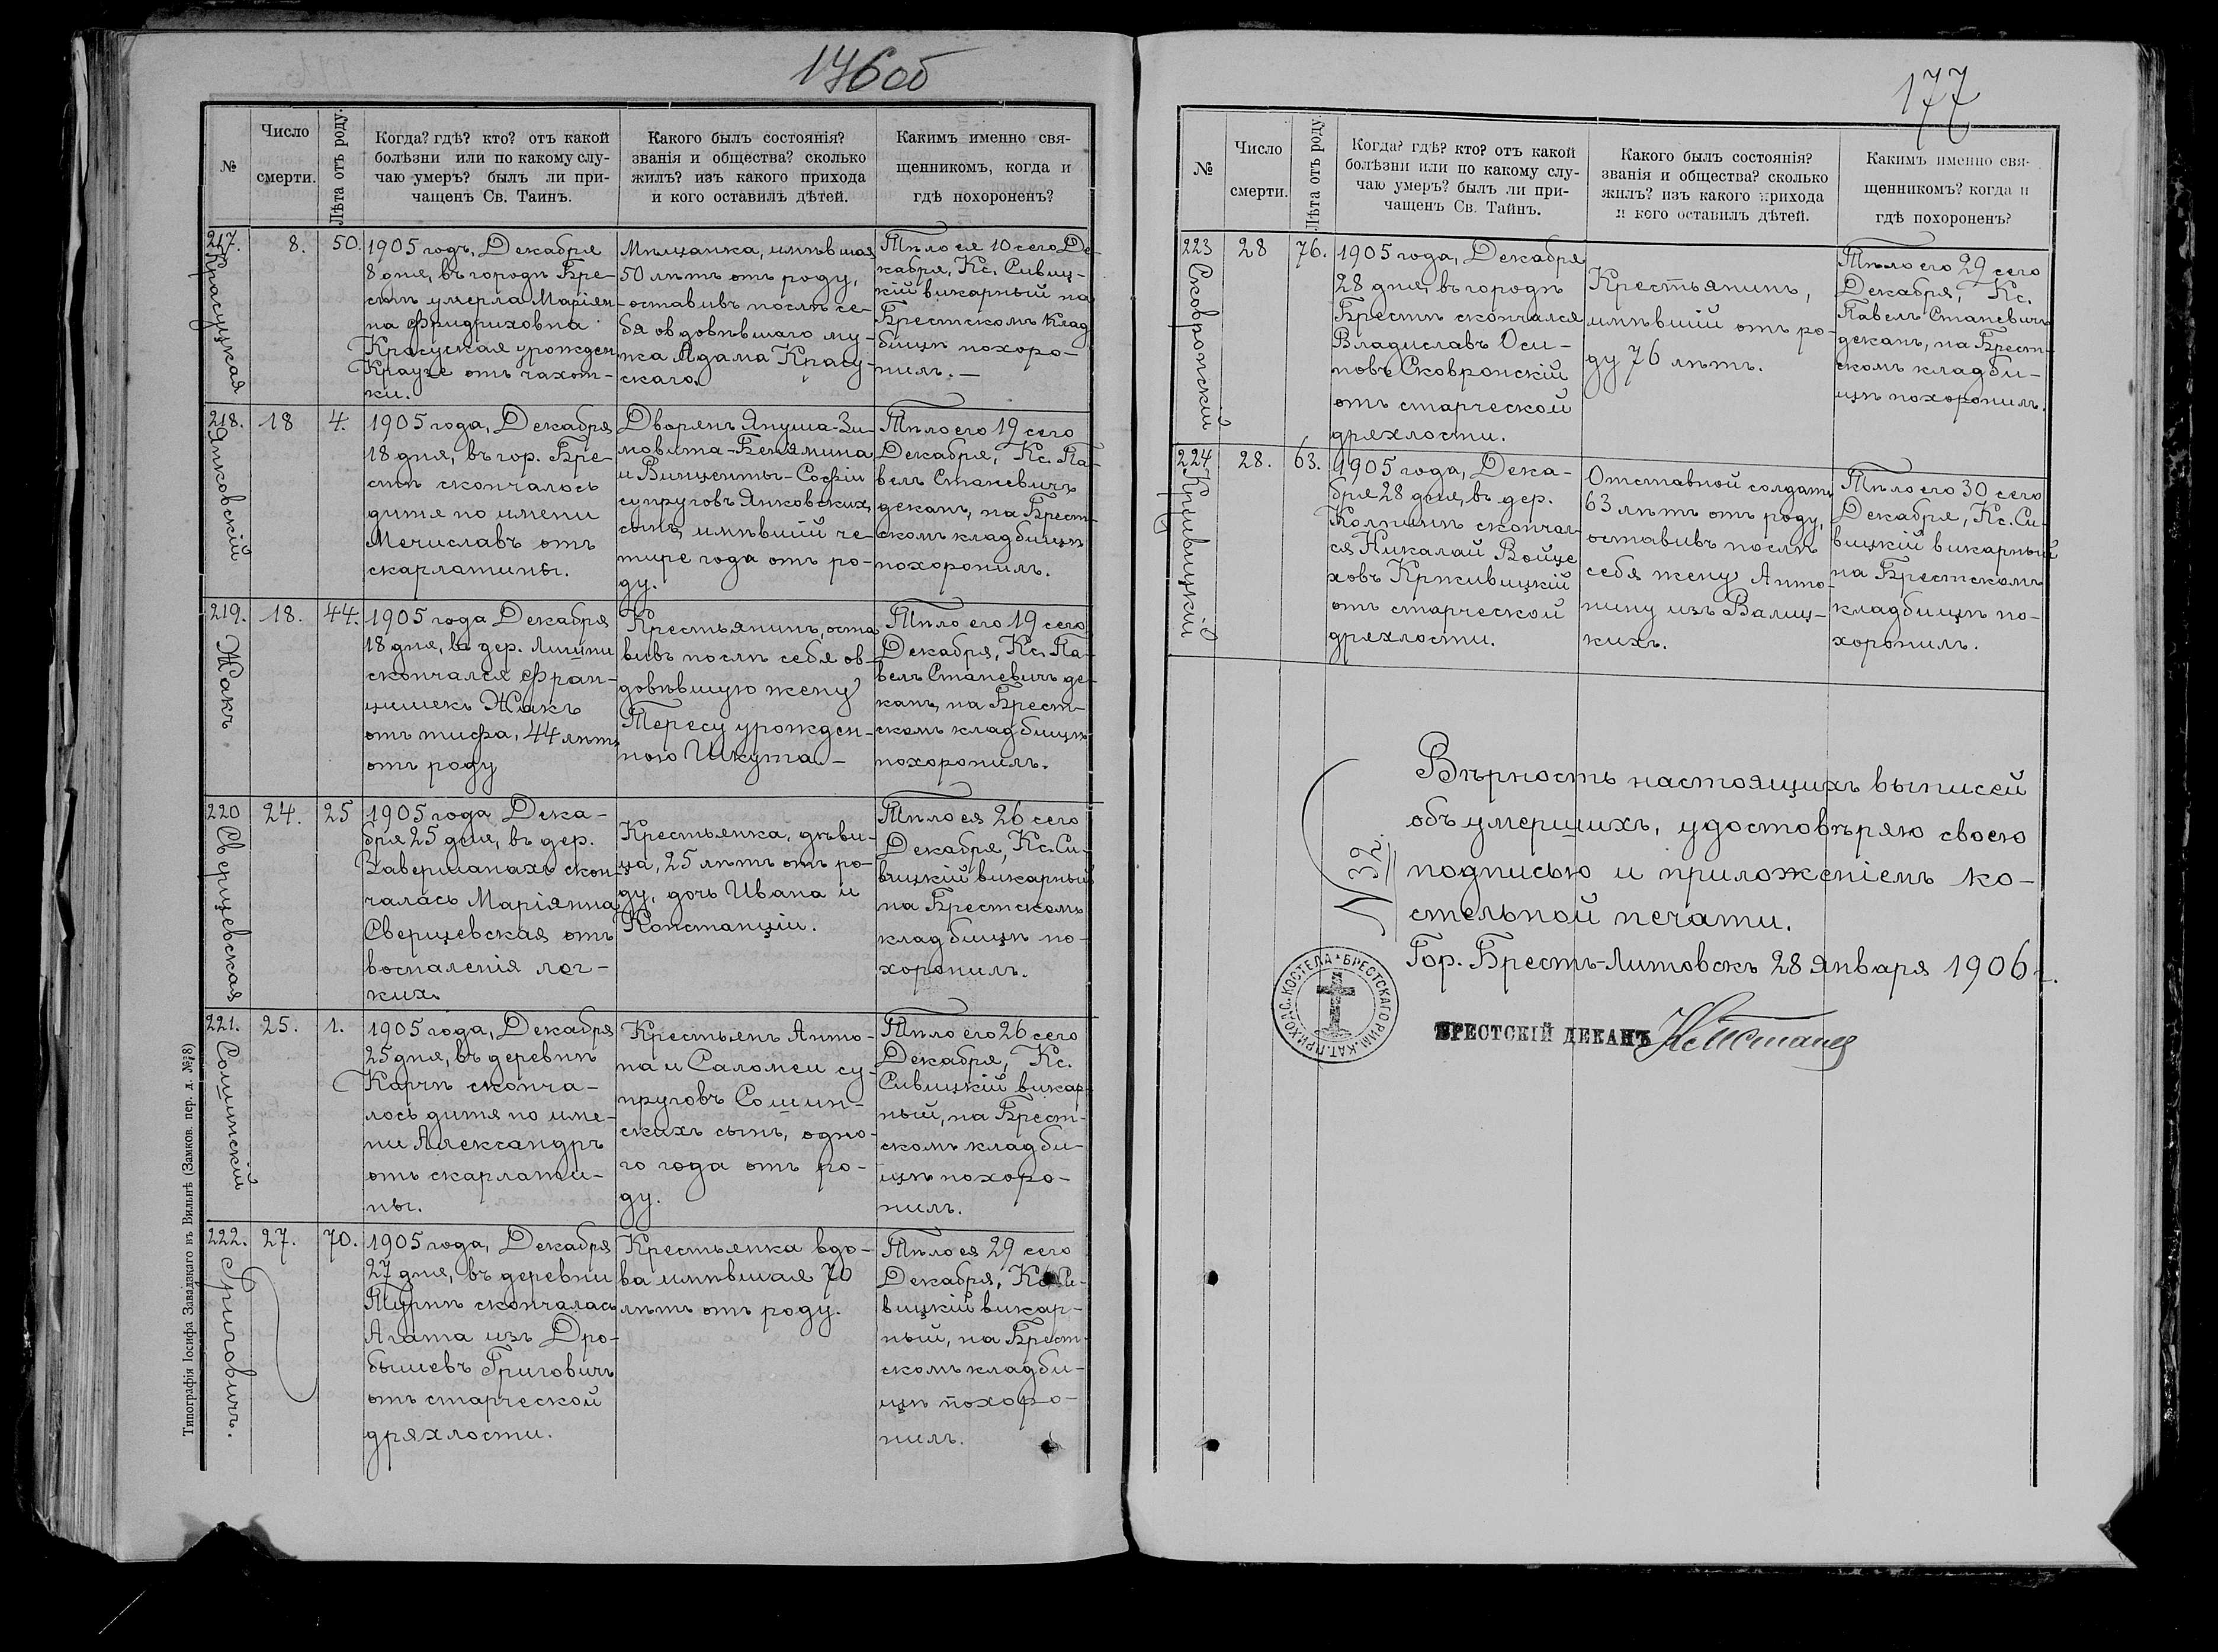 176об
№
Число
смерти.
Лѣта отъ роду.
Когда? гдѣ? кто? отъ какой
болѣзни или по какому слу-
чаю умеръ? былъ ли при-
чащенъ Св. Таинъ.
Какого былъ состоянія?
званія и общества? сколько
жилъ? изъ какого прихода
и кого оставилъ дѣтей.
Какимъ именно свя-
щенникомъ, когда и
гдѣ похороненъ?
217.
Красуцкая
8.
50.
1905 годъ, Декабря
8 дня, въ городѣ Бре-
стѣ умерла Маріян-
на Фридриховна
Красуская урожден
Краузе отъ чахот-
ки.
Мѣщанка, имѣвшая
50 лѣтъ отъ роду,
оставивъ послѣ се-
бя овдовѣвшаго му-
жа Адама Красу-
скаго.
Тѣло ея 10 сего Де-
кабря, Кс. Сивиц-
кій викарный на
Брестскомъ Клад
бищѣ похоро-
нилъ. —
218.
Янковскій
18
4.
1905 года, Декабря
18 дня, въ гор. Бре-
стѣ скончалось
дитя по имени
Мечиславъ отъ
скарлатины.
Дворянъ Януша-Зи-
мовита-Беніямина
и Винценты-Софіи
супруговъ Янковскихъ
сынъ, имѣвшій че-
тыре года отъ ро-
ду.
Тѣло его 19 сего
Декабря, Кс. Па-
велъ Станевичъ
деканъ, на Брест-
скомъ кладбищѣ
похоронилъ.
219.
Жакъ
18.
44.
1905 года Декабря
18 дня, въ дер. Лищи
скончался Фран-
цишекъ Жакъ
отъ тифа, 44 лѣтъ
отъ роду
Крестьянинъ, оста
вивъ послѣ себя ов-
довѣвшую жену
Тересу урожден-
ною Шкута. —
Тѣло его 19 сего
Декабря, Кс. Па-
велъ Станевичъ де-
канъ, на Брест-
скомъ кладбищѣ
похоронилъ.
220
Сверщевская
24.
25
1905 года Дека-
бря 25 дня, въ дер.
Завершанахъ скон-
чалась Маріянна
Сверщевская отъ
воспаленія лег-
кихъ
Крестьянка, дѣви-
ца, 25 лѣтъ отъ ро-
ду, дочь Ивана и
Констанціи.
Тѣло ея 26 сего
Декабря, Кс. Си-
вицкій викарный
на Брестскомъ
кладбищѣ по-
хоронилъ.
221.
Сошинскій
25.
1.
1905 года, Декабря
25 дня, въ деревнѣ
Карчѣ сконча-
лось дитя по име-
ни Александръ
отъ скарлати-
ны.
Крестьянъ Анто-
на и Саломеи су-
пруговъ Сошин-
скихъ сынъ, одно-
го года отъ ро-
ду.
Тѣло его 26 сего
Декабря, Кс.
Сивицкій викар-
ный, на Брест-
скомъ кладби-
щѣ похоро-
нилъ.
222.
Григовичъ.
27.
70.
1905 года, Декабря
27 дня, въ деревни
Турнѣ скончалась
Агата изъ Дро-
бышевъ Григовичъ
отъ старческой
дряхлости.
Крестьянка вдо-
ва имѣвшая 70
лѣтъ отъ роду.
Тѣло ея 29 сего
Декабря, Кс. Си-
вицкій викар-
ный, на Брест-
скомъ кладби-
щѣ похоро-
нилъ.
Типографія Іосифа Завадзкаго въ Вильнѣ (Замков. пер. д. №8)
177
№
Число
смерти.
Лѣта отъ роду
Когда? гдѣ? кто? отъ какой
болѣзни или по какому слу-
чаю умеръ? былъ ли при-
чащенъ Св. Тайнъ.
Какого былъ состоянія?
званія и общества? сколько
жилъ? изъ какого прихода
и кого оставилъ дѣтей.
Какимъ именно свя-
щенникомъ? когда и
гдѣ похороненъ?
223
Сковронскій
28
76.
1905 года, Декабря
28 дня, въ городѣ
Брестѣ скончался
Владиславъ Оси-
повъ Сковронскій
отъ старческой
дряхлости.
Крестьянинъ,
имѣвшій отъ ро-
ду 76 лѣтъ.
Тѣло его 29 сего
Декабря, Кс.
Павелъ Станевичъ
деканъ, на Брест-
скомъ кладби-
щѣ похоронилъ.
224
Крживицкій
28.
63.
1905 года, Дека-
бря 28 дня, въ дер.
Колпинѣ скончал-
ся Никалай Войце
ховъ Крживицкій
отъ старческой
дряхлости.
Отставной солдатъ
63 лѣтъ отъ роду,
оставивъ послѣ
себя жену Анто-
нину изъ Валиц-
кихъ.
Тѣло его 30 сего
Декабря, Кс. Си-
вицкій викарный
на Брестскомъ
кладбищѣ по-
хоронилъ.
Вѣрность настоящихъ выписей
объ умершихъ, удостовѣряю своею
подписью и приложеніемъ ко-
стельной печати.
N 32.
Гор. Брестъ-Литовскъ 28 Января 1906 г.
ПРИХОДС. КОСТЕЛА * БРЕСТСКАГО РИМ. КАТ.
БРЕСТСКІЙ ДЕКАНЪ